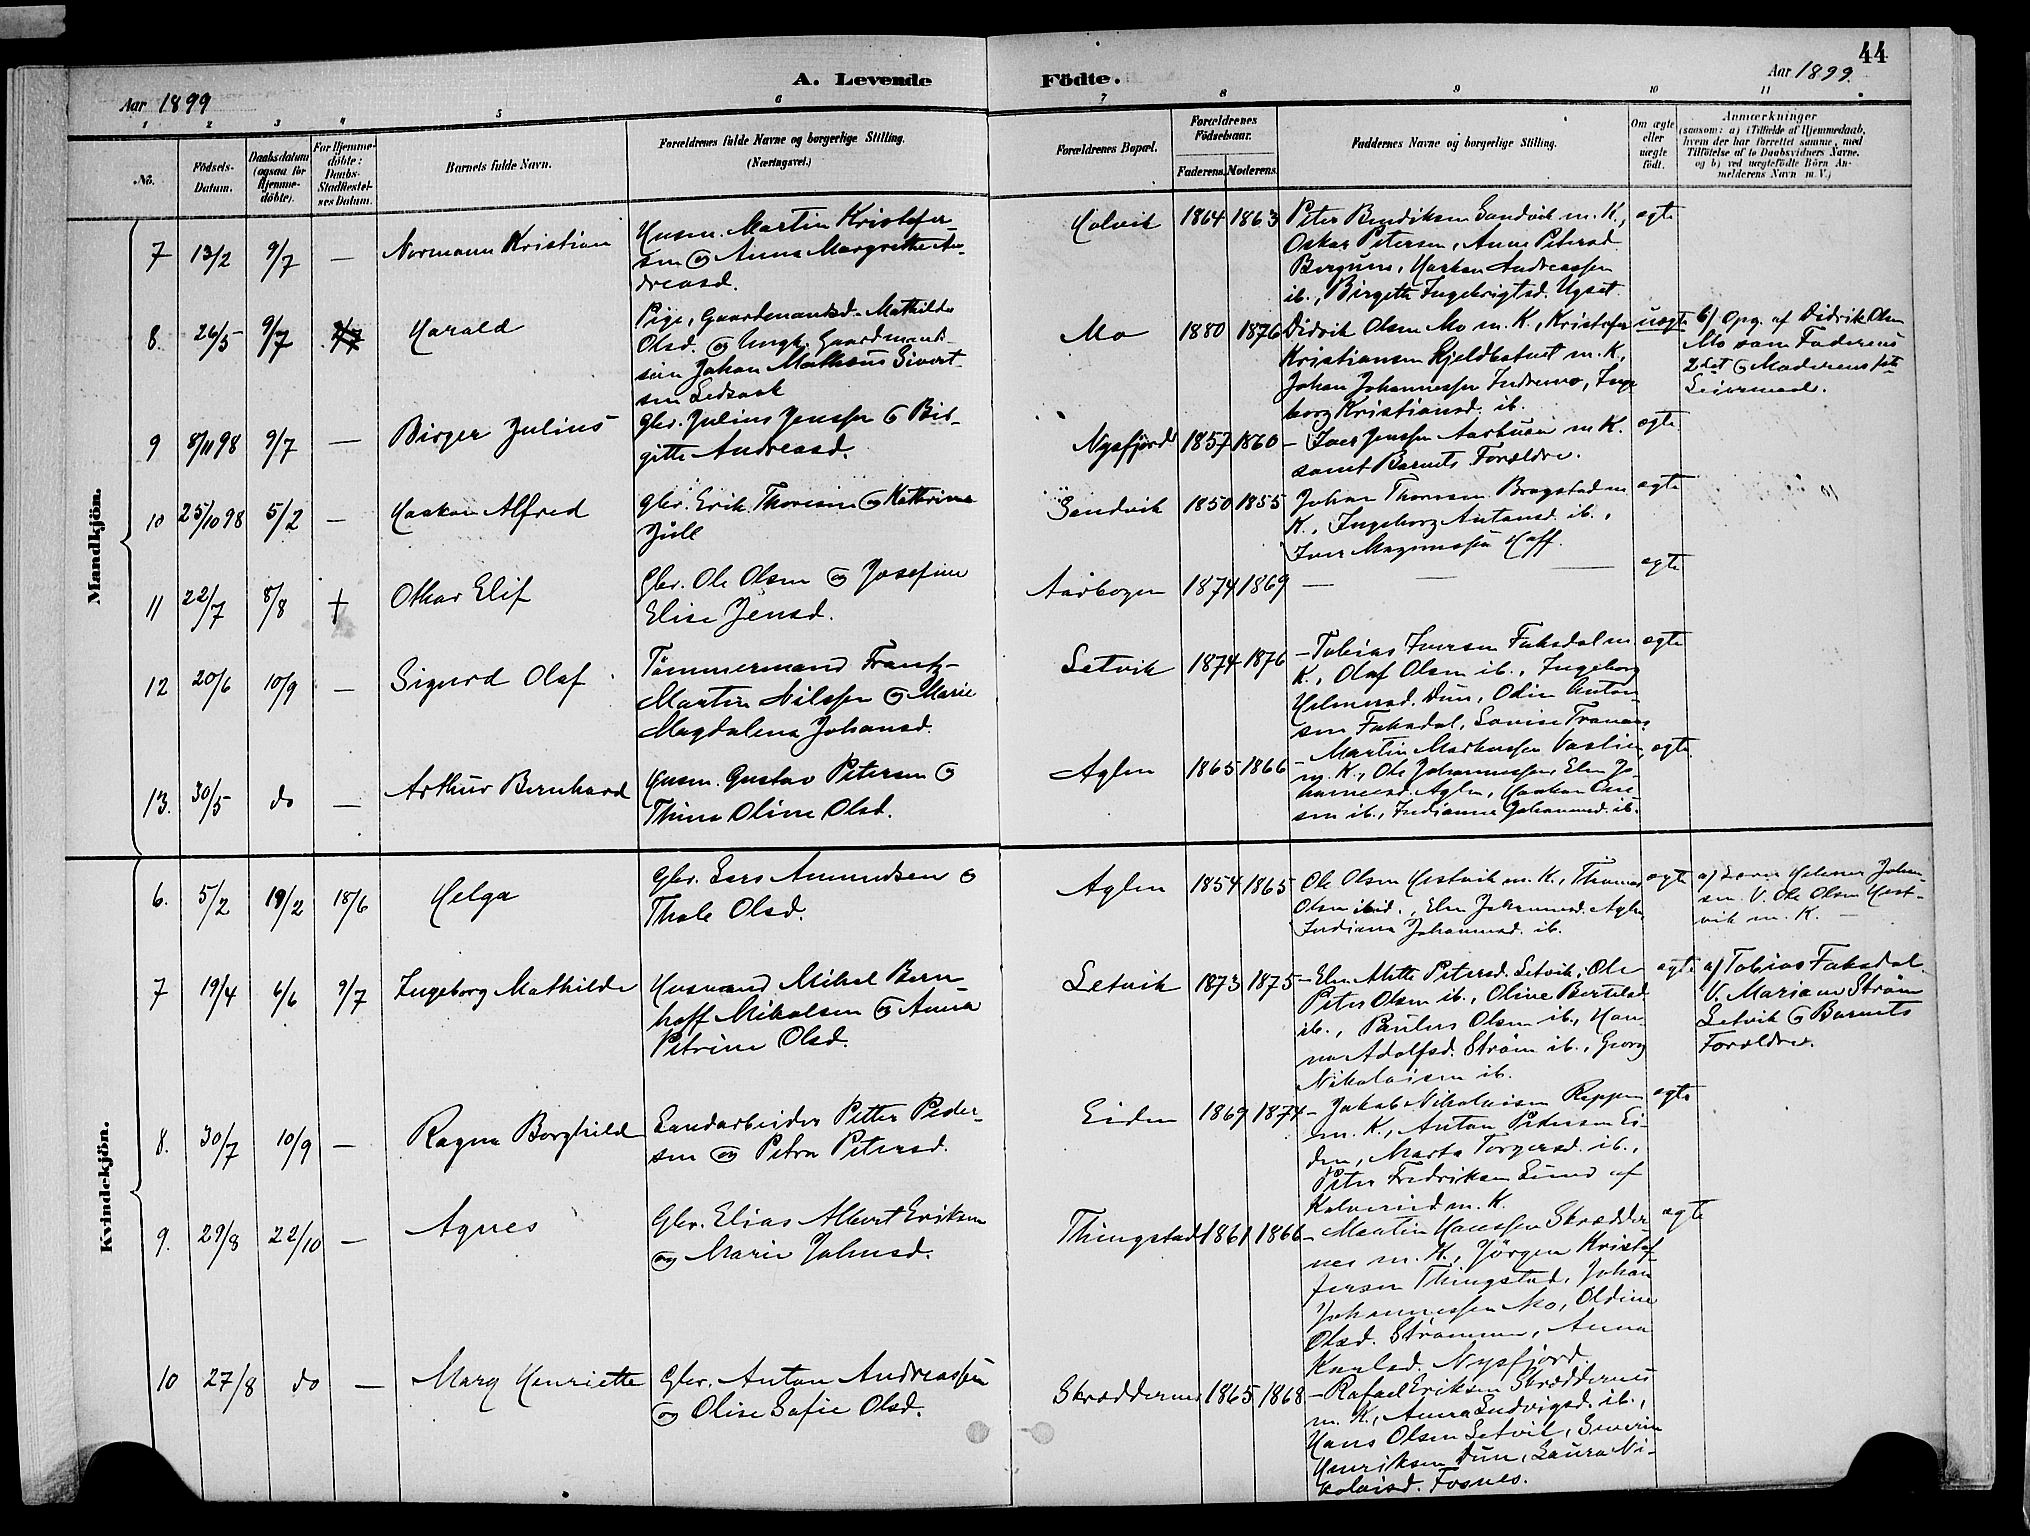 44
A. Levende Födte.
Aar 1899
Aar 1899
1 2 3 4 5 6 7 8 9 10 11
No.
Födsels-Datum.
Daabsdatum (ogsaa for Hjemmedöbte).
For Hjemmedöbte: Daabs-Stadfæstelses Datum.
Barnets fulde Navn.
Forældrenes fulde Navne og borgerlige Stilling.
(Næringsvei.)
Forældrenes Bopæl.
Forældrenes Födselsaar.
Faderens. Moderens.
Faddernes Navne og borgerlige Stilling.
Om ægte eller uægte födt.
Anmærkninger
(saasom: a) i Tilfælde af Hjemmedaab, hvem der har forrettet samme, med Tilföielse af to Daabsvidners Navne, og b) ved uægtefödte Börn Anmelderens Navn m. V.)
Mandkjön.
7 13/2 9/7 — Normann Kristian
Husm. Martin Kristofer-
sen og Anna Margrethe An-
dreasd.
Holvik 1864 1863
Peter Bendiksen Sandvik m. K.,
Oskar Petersen, Anne Petersd.
Haakon Andreassen
ib., Birgitte Ingebrigtsd.
ægte
8 26/5 9/7 9/7 Harald
Pige, Gaardmandsd. Mathilde
Olsd. og Ungk. Gaardmands-
søn Johan Mathæus Sivert-
sen
Mo 1880 1876
Didrik Olsen Mo m. K., Kristofer
Kristiansen m. K.,
Johan Johannessen Indremo, Inge-
borg Kristiansd. ib.
uægte
b) Opg. af Didrik Olsen
Mo som Faderens
2det og Moderens 1ste
Leiermaal.
9 8/11 98 9/7 — Birger Julius
Gbr. Julius Jenssen og Bir-
gitte Andreasd.
Nysfjord 1857 1860
— Iver Jenssen m K.
samt Barnets Forældre.
ægte
10 25/10 98 5/2 — Haakon Alfred
Gbr. Erik Thoresen og Kathrine
Jull
Sandvik 1850 1855
Johan Thoresen Bragstad m
K., Ingeborg Antonsd. ib.,
Iver Magnussen Hoff.
ægte
11 22/7 8/8 + Othar Elif
Gbr. Ole Olsen og Josefine
Elise Jensd.
Aarbogen 1874 1869
— — —
ægte
12 20/6 10/9 — Sigurd Olaf
Tømmermand Frantz
Martin Nilssen og Marie
Magdalena Johansd.
Setvik 1874 1876
— Tobias Iversen Faksdal m
K., Olaf Olsen ib., Ingeborg
Helmersd. Dun, Odin Anton-
sen Faksdal, Lovise
ægte
13. 30/5 do — Arthur Bernhard
Husm. Gustav Petersen og
Thina Oline Olsd.
Aglen 1865 1866
— Martin Markussen
m. K., Ole Johannessen, Elen Jo-
hannesd. Aglen, Haakon
sen ib., Indianna Johannesd. ib.
ægte
Kvindekjön.
6. 5/2 19/2 18/6 Helga
Gbr. Lars Amundsen og
Thale Olsd.
Aglen 1854 1865
Ole Olsen Hestvik m. K., Thomas
Olsen ibid., Elen Johannesd. Aglen,
Indiana Johannesd. ib.
ægte
a) Helmer Johan-
sen. V. Ole Olsen Hest-
vik m. K. —
7 19/4 6/6 9/7 Ingeborg Mathilde
Husmand Mikal Bern-
hoff Mikalsen og Anna
Petrine Olsd.
Setvik 1873 1875
— Elen Mette Petersd. Setvik, Ole
Peter Olsen ib., Oline Bertelsd.
ib., Paulus Olsen ib., Han-
na Adolfsd. Strøm ib., Georg
Nikolaisen ib.
ægte
a) Tobias Faksdal.
V. Mariane Strøm
Setvik og Barnets
Forældre.
8. 30/7 10/9 — Ragna Borghild
Landarbeider Petter Peder-
sen og Petra Petersd.
Eiden 1869 1874
— Jakob Nikolaisen Reppen
m. K., Anton Pedersen Ei-
den, Marta Torgersd. ib.,
Peter Fredriksen Lund af
Kolvereid m. K.
ægte
9. 29/8 22/10 — Agnes
Gbr. Elias Albert Eriksen
og Marie Johnsd.
Thingstad 1861 1866
— Martin Hanssen Skrædder-
nes m. K., Jørgen Kristof-
fersen Thingstad, Johan
Johannessen Mo, Oldine
Olsd. Strømmen, Anna
Karlsd. Nysfjord.
ægte
10 27/8 do — Mary Henriette
Gbr. Anton Andreassen
og Olise Sofie Olsd.
Skræddernes 1865 1868
— Rafael Eriksen Skræddernes
m. K., Anna Ludvigsd. ib.,
Hans Olsen Setvik, Severin
Henriksen Dun, Laura Ni-
kolaisd. Fosnes.